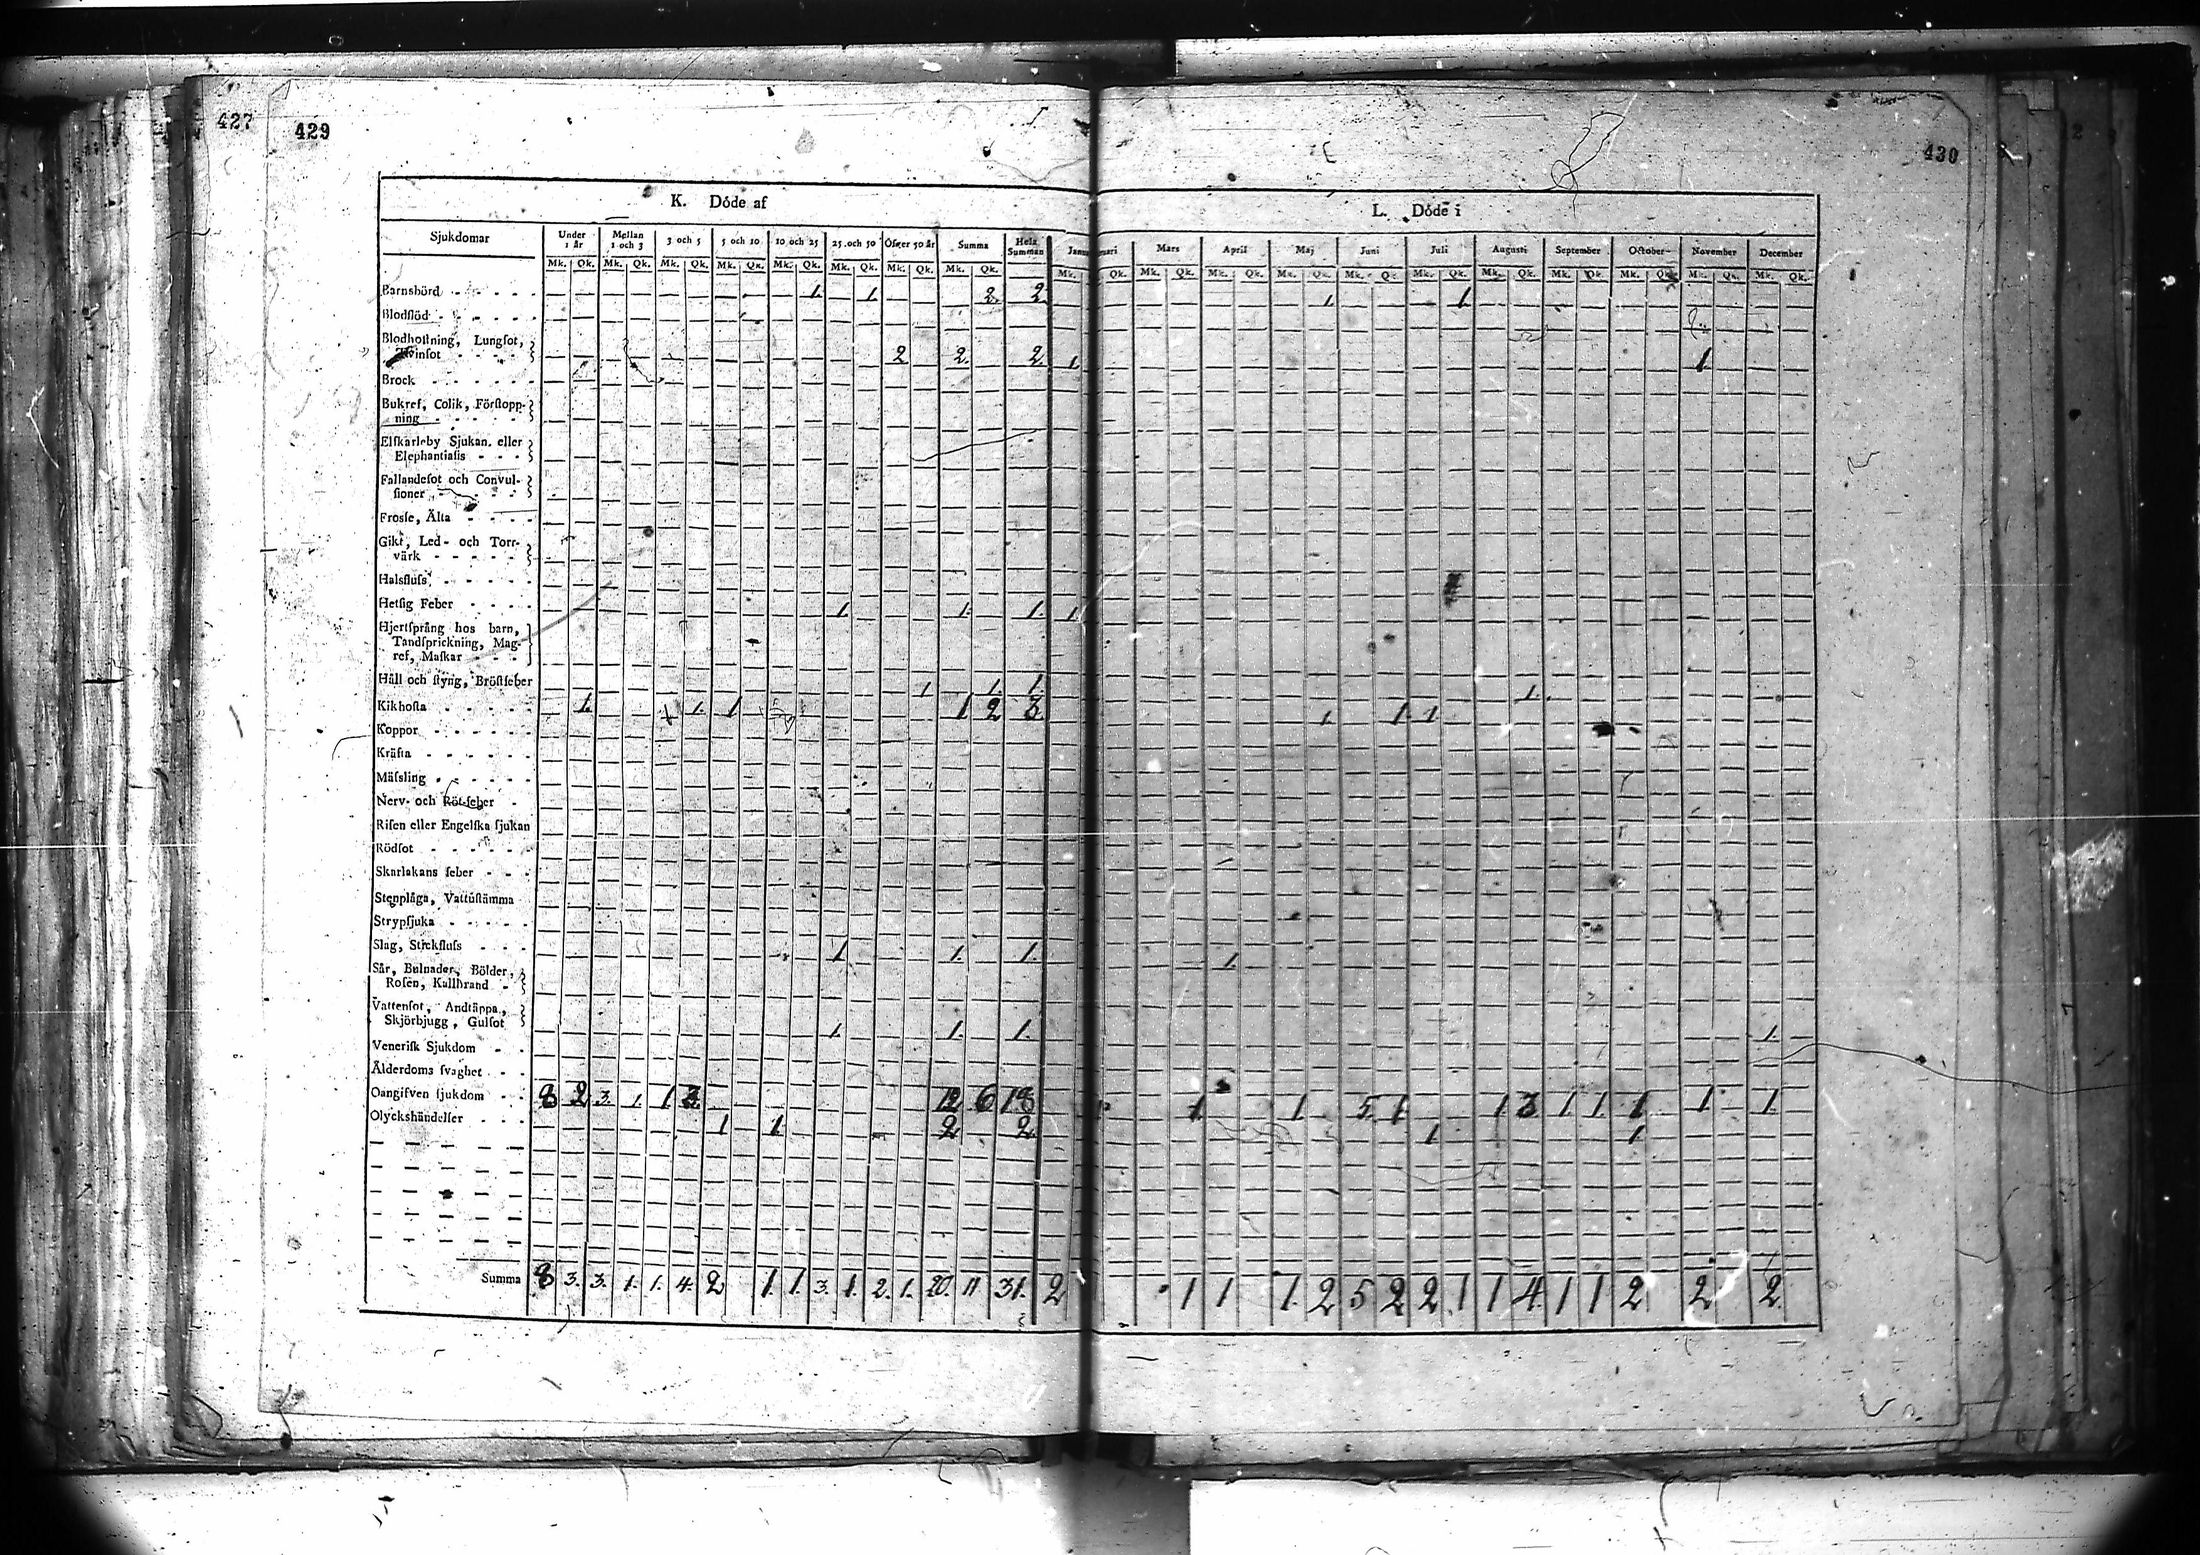 427 429
430
K. Döde af
L. Döde i
Sjukdomar Under 1 år Mellan 1 och 3 3 och 5 5 och 10 10 och 25 25 och 50 Öfver 50 år Summa Hela Summan
Mars April Maj Juni Juli Augusti September October November December
Mk. Qk. Mk. Qk. Mk. Qk. Mk. Qk. Mk. Qk. Mk. Qk. Mk. Qk. Mk. Qk.
Mk. Qk. Mk. Qk. Mk. Qk. Mk. Qk. Mk. Qk. Mk. Qk. Mk. Qk. Mk. Qk. Mk. Qk. Mk. Qk. Mk. Qk. Mk. Qk.
Barnsbörd - - - - - 1. 1. 2. 2. 1. 1
Blodflöd - - - - -
Blodhostning, Lungsot,
Tvinsot - - - - 2 2. 2. 1. 1
Brock - - - - - -
Bukref, Colik, Förstopp-
ning - - - - -
Elfkarleby Sjukan. eller
Elephantiasis - - -
Fallandesot och Convul-
sioner - - - -
Frossa, Älta - - - -
Gikt, Led- och Torr-
värk - - - - -
Halsfluss - - - - -
Hetsig Feber - - - - 1. 1. 1. 1.
Hjertsprång hos barn,
Tandsprickning, Mag-
ref, Maskar - - -
Håll och styng, Bröstfeber 1 1. 1. 1.
Kikhosta - - - - - 1. 1. 1 1 2 3. 1. 1 1
Koppor - - - - -
Kräfta - - - - -
Mässling - - - - -
Nerv- och Röt-feber -
Risen eller Engelska sjukan
Rödsot - - - - - -
Skarlakans feber - - -
Stenplåga, Vattustämma
Strypsjuka - - - - -
Slag, Stickfluss - - - 1. 1. 1. 1.
Sår, Bulnader, Bölder,
Rosen, Kallbrand -
Vattensot, Andtäppa,
Skjörbjugg, Gulsot 1. 1. 1. 1.
Venerisk Sjukdom - -
Ålderdoms svaghet - -
Oangifven sjukdom - - 8 2 3. 1. 1 3. 12 6 18 1 1 5. 1 1 3 1 1. 1 1 1.
Olyckshändelser - - - 1 1 2 2. 1 1
Summa 8 3. 3. 1. 1. 4. 2 1. 1. 3. 1. 2. 1. 20. 11 31. 2 1 1 1. 2 5 2 2 1 1 4. 1 1 2 2 2.